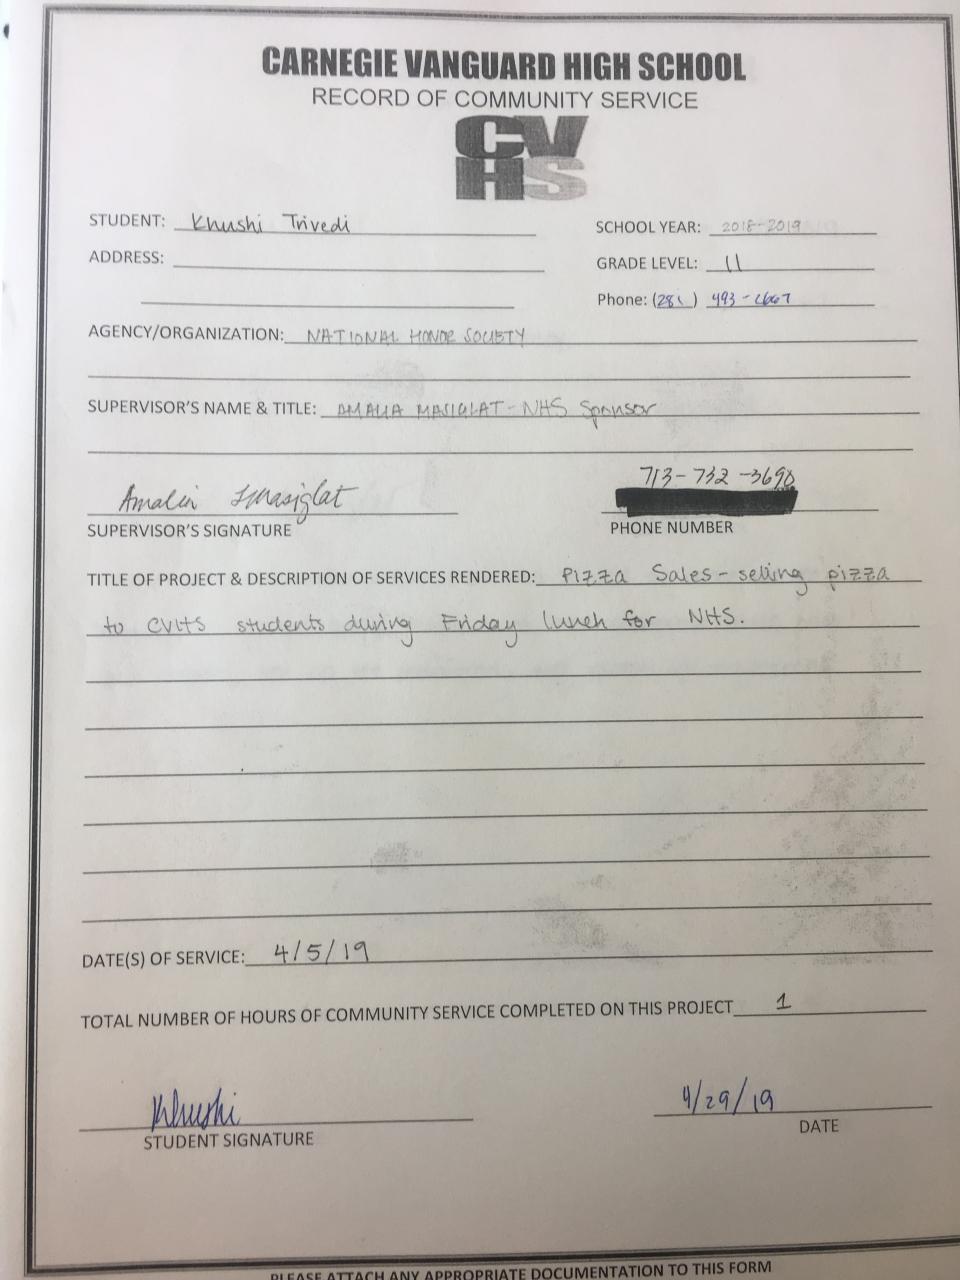 CARNEGIE VANGUARD HIGH SCHOOL
RECORD OF COMMUNITY SERVICE
CV
HS
STUDENT: Khushi Trivedi
SCHOOL YEAR: 2018-2019
ADDRESS:
GRADE LEVEL: 11
Phone: (281) 493-2667
AGENCY/ORGANIZATION: NATIONAL HONOR SOCIETY
SUPERVISOR'S NAME & TITLE: AMALIA MASIGLAT - NHS Sponsor
713-732-3690
Amalia Masiglat
SUPERVISOR'S SIGNATURE
PHONE NUMBER
TITLE OF PROJECT & DESCRIPTION OF SERVICES RENDERED: Pizza Sales - selling pizza
to CVHS students during Friday lunch for NHS.
DATE(S) OF SERVICE: 4/5/19
TOTAL NUMBER OF HOURS OF COMMUNITY SERVICE COMPLETED ON THIS PROJECT 1
Khushi
4/29/19
STUDENT SIGNATURE
DATE
PLEASE ATTACH ANY APPROPRIATE DOCUMENTATION TO THIS FORM